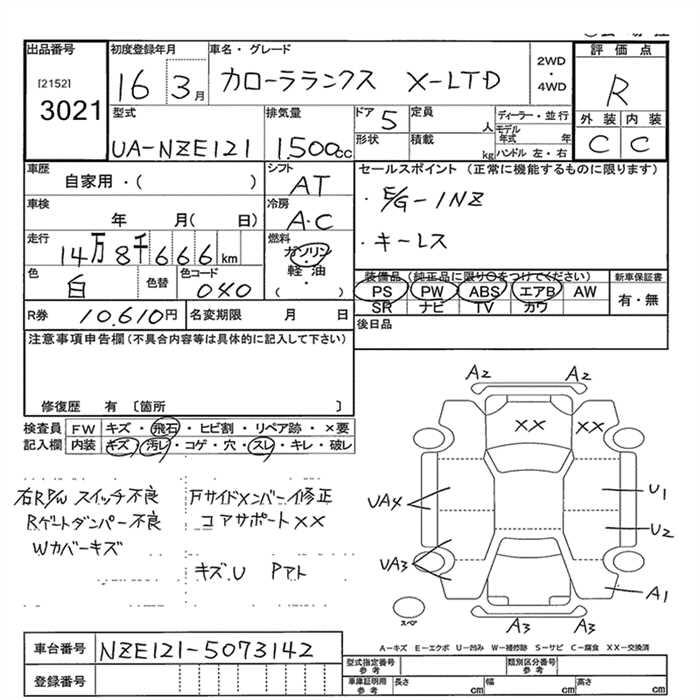 出品番号
[2152]
3021
初度登録年月
16 3月
車名・グレード
カローラランクス X-LTD
2WD
・
4WD
評価点
R
外装 内装
C C
型式
UA-NZE121
排気量
1.500cc
ドア 5
定員
人
形状
積載
kg
ディーラー・並行
モデル年式 年
ハンドル 左・右
車歴
自家用・( )
シフト
AT
車検
年 月( 日)
冷房
A・C
走行
14万8千666km
燃料
ガソリン
・
軽油
( )
色
白
色替
色コード
040
R券 10.610円
名変期限 月 日
セールスポイント (正常に機能するものに限ります)
・E/G-1NZ
・キーレス
装備品 (純正品に限り○をつけてください)
PS PW ABS エアB AW
SR ナビ TV カワ
新車保証書
有・無
後日品
注意事項申告欄(不具合内容等は具体的に記入して下さい)
修復歴 有 〔箇所 〕
検査員記入欄
FW キズ・飛石・ヒビ割・リペア跡・×要
内装 キズ・汚レ・コゲ・穴・スレ・キレ・破レ
右RP/W スイッチ不良
Rゲートダンパー不良
Wカバーキズ
Fサイドメンバーイ修正
コアサポートXX
キズ.U Pアト
A2 A2
XX XX
UA4
U1
U2
UA3
A1
A3 A3
スペア
A-キズ E-エクボ U-凹み W-補修跡 S-サビ C-腐食 XX-交換済
車台番号 NZE121-5073142
登録番号
型式指定番号
参考
類別区分番号
参考
車庫証明用
参考
長さ cm
幅 cm
高さ cm